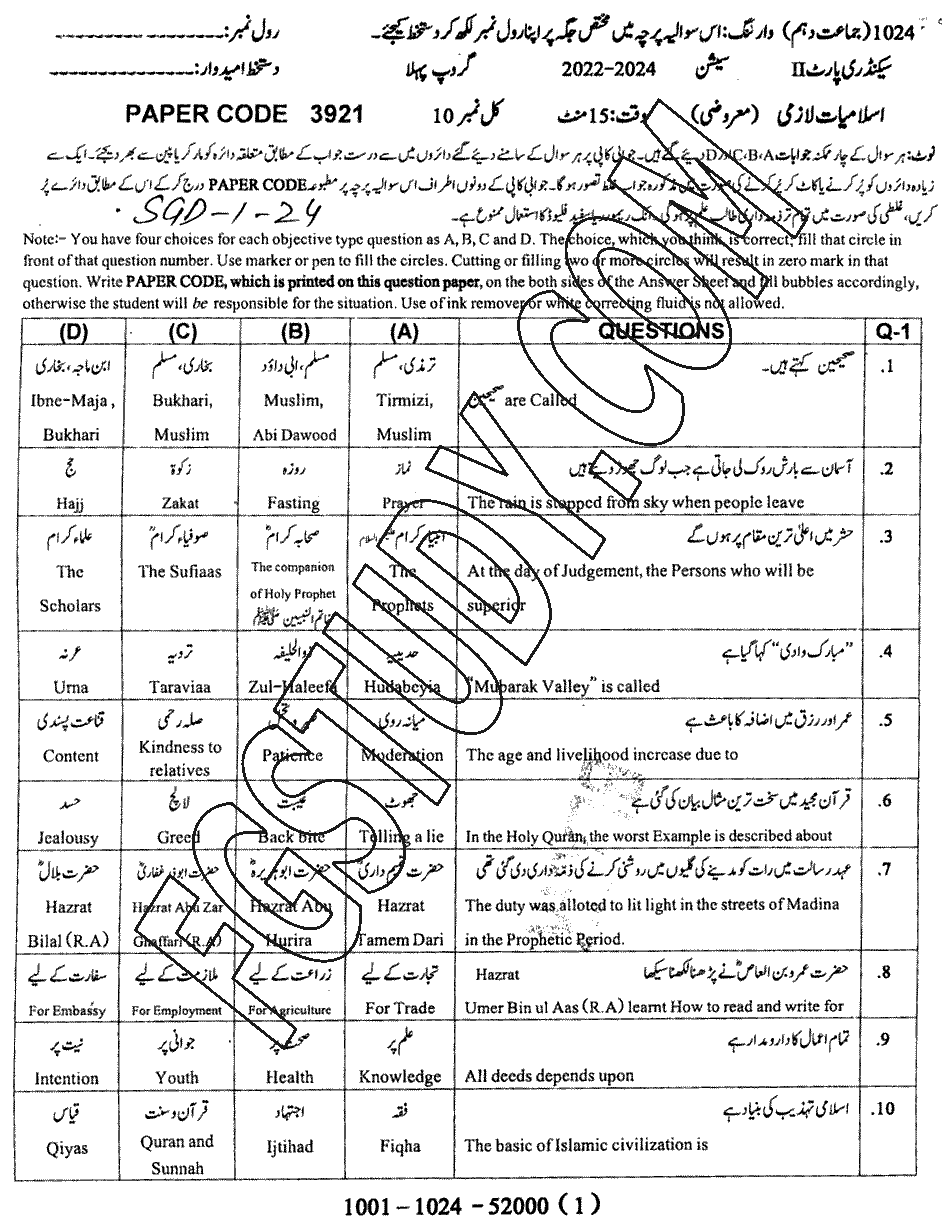 1024 (جماعت دہم) وارننگ: اس سوالیہ پرچہ میں مختص جگہ پر اپنا رول نمبر لکھ کر دستخط کیجئے۔ رول نمبر: ـــــــــــــــــ
سیکنڈری پارٹ II سیشن 2022-2024 گروپ پہلا دستخط امیدوار: ـــــــــــــــــ
اسلامیات لازمی (معروضی) وقت: 15 منٹ کل نمبر 10 PAPER CODE 3921
نوٹ: ہر سوال کے چار ممکنہ جوابات A،B،C،D دیئے گئے ہیں۔ جوابی کاپی پر ہر سوال کے سامنے دیئے گئے دائروں میں سے درست جواب کے مطابق متعلقہ دائرہ کو مارکر یا پین سے بھر دیجئے۔ ایک سے
زیادہ دائروں کو پُر کرنے یا کاٹ کر پُر کرنے کی صورت میں مذکورہ جواب غلط تصور ہوگا۔ جوابی کاپی کے دونوں اطراف اس سوالیہ پرچہ پر مطبوعہ PAPER CODE درج کر کے اس کے مطابق دائرے پُر
کریں، غلطی کی صورت میں تمام تر ذمہ داری طالب علم پر ہو گی۔ انک ریموور یا سفید فلیوڈ کا استعمال ممنوع ہے۔
SGD-1-24
Note:- You have four choices for each objective type question as A, B, C and D. The choice, which you think, is correct; fill that circle in
front of that question number. Use marker or pen to fill the circles. Cutting or filling two or more circles will result in zero mark in that
question. Write PAPER CODE, which is printed on this question paper, on the both sides of the Answer Sheet and fill bubbles accordingly,
otherwise the student will be responsible for the situation. Use of ink remover or white correcting fluid is not allowed.
(D) (C) (B) (A) QUESTIONS Q-1
ابن ماجہ، بخاری بخاری، مسلم مسلم، ابی داؤد ترمذی، مسلم صحیحین کہتے ہیں۔ .1
Ibne-Maja, Bukhari, Muslim, Tirmizi, صحیحین are Called
Bukhari Muslim Abi Dawood Muslim
حج زکوٰۃ روزہ نماز آسمان سے بارش روک لی جاتی ہے جب لوگ چھوڑ دیتے ہیں .2
Hajj Zakat Fasting Prayer The rain is stopped from sky when people leave
علماء کرام صوفیاء کرامؒ صحابہ کرامؓ انبیاء کرام علیہم السلام حشر میں اعلیٰ ترین مقام پر ہوں گے .3
The The Sufiaas The companion The At the day of Judgement, the Persons who will be
Scholars of Holy Prophet Prophets superior
خاتم النبیین ﷺ
عرنہ ترویہ ذوالحلیفہ حدیبیہ "مبارک وادی" کہا گیا ہے .4
Urna Taraviaa Zul-Haleefa Hudabeyia "Mubarak Valley" is called
قناعت پسندی صلہ رحمی میانہ روی عمر اور رزق میں اضافہ کا باعث ہے .5
Content Kindness to Patience Moderation The age and livelihood increase due to
relatives
حسد لالچ غیبت جھوٹ قرآن مجید میں سخت ترین مثال بیان کی گئی ہے .6
Jealousy Greed Back bite Telling a lie In the Holy Quran, the worst Example is described about
حضرت بلالؓ حضرت ابوذر غفاریؓ حضرت ابوہریرہؓ حضرت تمیم داریؓ عہد رسالت میں رات کو مدینے کی گلیوں میں روشنی کرنے کی ذمہ داری دی گئی تھی .7
Hazrat Hazrat Abu Zar Hazrat Abu Hazrat The duty was alloted to lit light in the streets of Madina
Bilal (R.A) Ghaffari (R.A) Hurira Tamem Dari in the Prophetic Period.
سفارت کے لیے ملازمت کے لیے زراعت کے لیے تجارت کے لیے حضرت عمرو بن العاصؓ نے پڑھنا لکھنا سیکھا Hazrat .8
For Embassy For Employment For Agriculture For Trade Umer Bin ul Aas (R.A) learnt How to read and write for
نیت پر جوانی پر صحت پر علم پر تمام اعمال کا دارومدار ہے .9
Intention Youth Health Knowledge All deeds depends upon
قیاس قرآن و سنت اجتہاد فقہ اسلامی تہذیب کی بنیاد ہے .10
Qiyas Quran and Ijtihad Fiqha The basic of Islamic civilization is
Sunnah
1001-1024-52000 (1)
FGSTUDY.COM